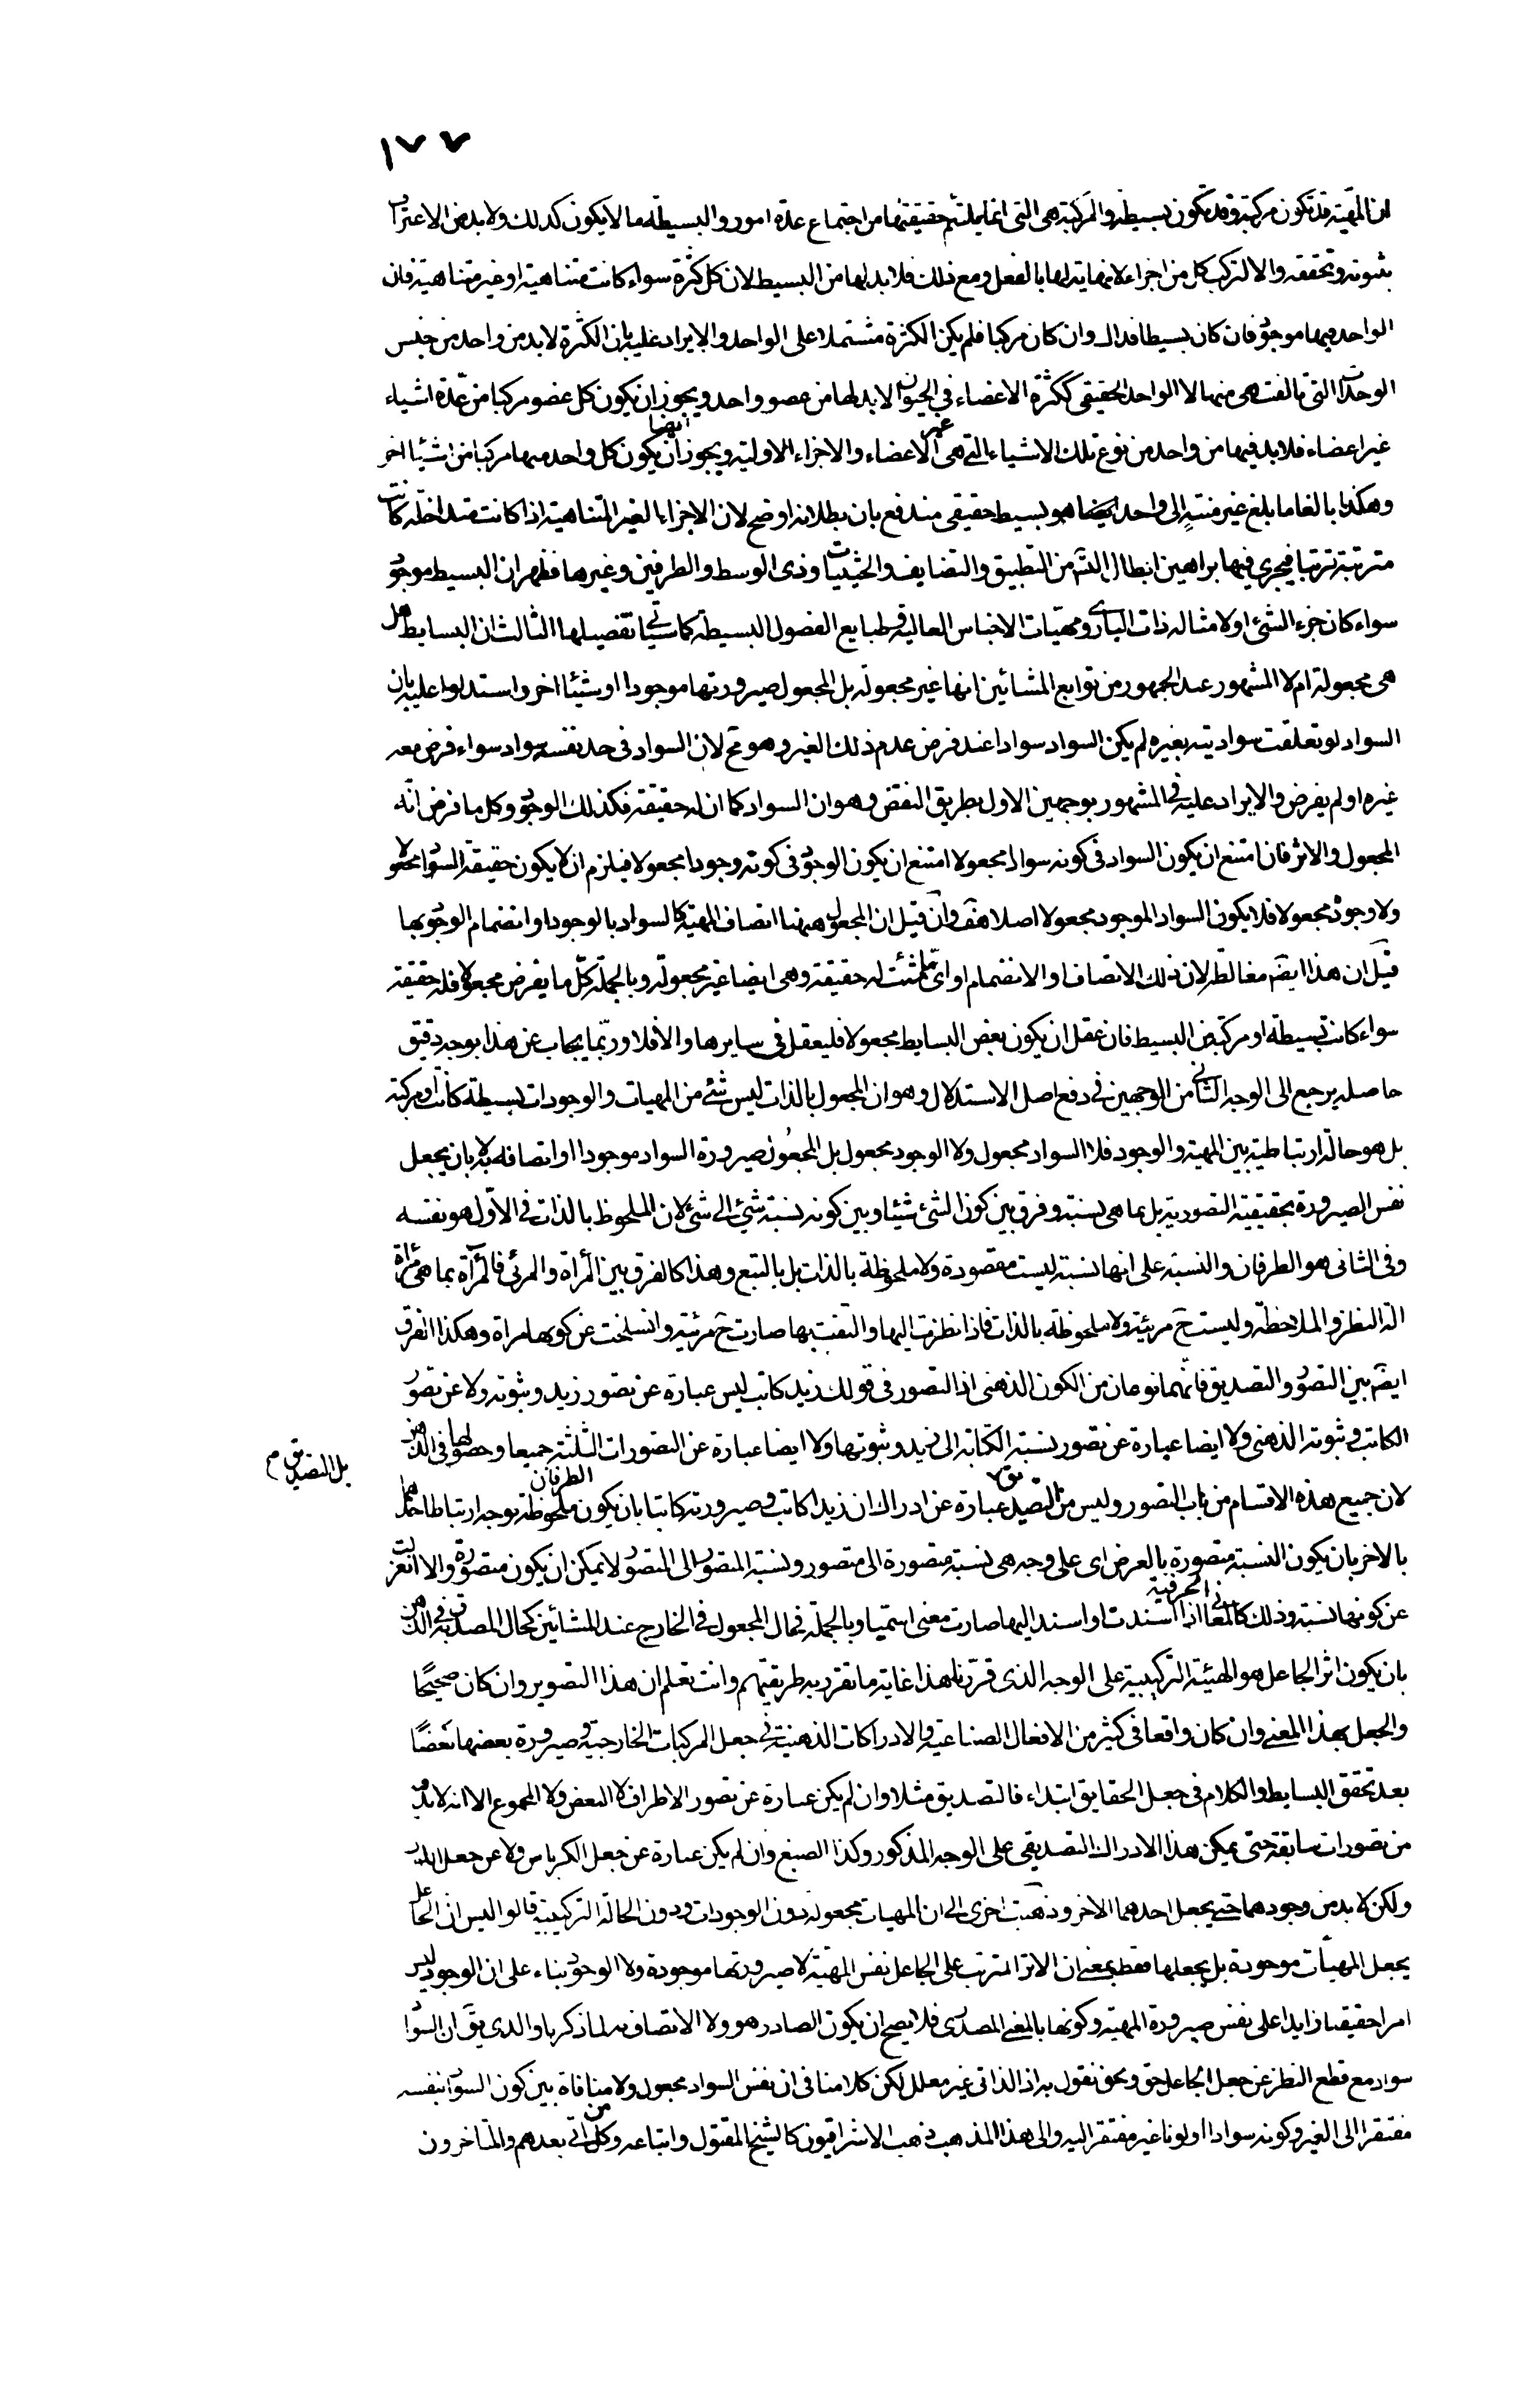 ١٧٧
ان المهية قد تكون مركبة وقد تكون بسيطة والمركبة هى التى انما يلتئم حقيقتها من اجتماع عدة امور والبسيطة ما لا يكون كذلك ولا بد من الاعتراف
بثبوته وتحققه والا لتركب كل من اجزاء لا نهاية لها بالفعل ومع ذلك فلا بد لها من البسيط لان كل كثرة سواء كانت متناهية او غير متناهية فان
الواحد فيها موجود فان كان بسيطا فذاك وان كان مركبا فلم يكن الكثرة مشتملا على الواحد والايراد عليه بان الكثرة لا بد من واحد من جنس
الوحدات التى تالفت هى منها لا الواحد الحقيقى ككثرة الاعضاء فى الحيوان لا بد لها من عضو واحد ويجوز ان يكون كل عضو مركبا من عدة اشياء
غير اعضاء فلا بد فيها من واحد من نوع تلك الاشياء التى هى غير الاعضاء والاجزاء الاولية ويجوز ايضا ان يكون كل واحد منها مركبا من اشياء اخر
وهكذا بالغا ما بلغ غير منته الى واحد هو بسيط حقيقى مندفع بان بطلانه اوضح لان الاجزاء الغير المتناهية اذا كانت متداخلة كانت
مترتبة ترتبا فيجرى فيها براهين ابطال التس من التطبيق والتضايف والحيثيات وذى الوسط والطرفين وغيرها فظهر ان البسيط موجود
سواء كان جزء الشئ اولا مثاله ذات البارى ومهيات الاجناس العالية وطبايع الفصول البسيطة كما سيأتى تفصيلها الثالث ان البسايط هل
هى مجعولة ام لا المشهور عند الجمهور من توابع المشائين انها غير مجعولة بل المجعول صيرورتها موجودا او شيئا اخر واستدلوا عليه بان
السواد لو تعلقت سواديته بغيره لم يكن السواد سوادا عند فرض عدم ذلك الغير وهو مح لان السواد فى حد نفسه سواد سواء فرض معه
غيره او لم يفرض والايراد عليه فى المشهور بوجهين الاول بطريق النقض وهو ان السواد كما ان له حقيقة فكذلك الوجود وكل ما فرض انه
المجعول والاثر فان امتنع ان يكون السواد فى كونه سوادا مجعولا امتنع ان يكون الوجود فى كونه وجودا مجعولا فيلزم ان لا يكون حقيقة السواد مجعولا
ولا وجوده مجعولا فلا يكون السواد الموجود مجعولا اصلا هف وان قيل ان المجعول ههنا اتصاف المهية كالسواد بالوجود او انضمام الوجود بها
قيل ان هذا ايضا مغالطة لان ذلك الاتصاف او الانضمام او اى ما شئت له حقيقة وهى ايضا غير مجعولة وبالجملة كل ما يفرض مجعولا فله حقيقة
سواء كانت بسيطة او مركبة من البسيط فان عقل ان يكون بعض البسايط مجعولا فليعقل فى سايرها والا فلا وربما يجاب عن هذا بوجه دقيق
حاصله يرجع الى الوجه الثانى من الوجهين فى دفع اصل الاستدلال وهو ان المجعول بالذات ليس شئ من المهيات والوجودات بسيطة كانت او مركبة
بل هو حالة ارتباطية بين المهية والوجود فلا السواد مجعول ولا الوجود مجعول بل المجعول صيرورة السواد موجودا او اتصافه به لا بان يجعل
نفس الصيرورة بحقيقية التصورية بل بما هى نسبة وفرق بين كون الشئ شيئا وبين كونه نسبة شئ الى شئ لان الملحوظ بالذات فى الاول هو نفسه
وفى الثانى هو الطرفان والنسبة على انها نسبة ليست مقصودة ولا ملحوظة بالذات بل بالتبع وهذا كالفرق بين المرأة والمرئى فالمرآة بما هى مرآة
الة النظر والملاحظة وليست ح مرئية ولا ملحوظة بالذات فاذا نظرت اليها والتفت بها صارت ح مرئية وانسلخت عن كونها مراة وهكذا الفرق
ايضا بين التصور والتصديق فانهما نوعان من الكون الذهنى اذ التصور فى قولك زيد كاتب ليس عبارة عن تصور زيد وثبوته ولا عن تصور
الكاتب وثبوته الذهنى ولا ايضا عبارة عن تصور نسبة الكتابة الى زيد وثبوتها ولا ايضا عبارة عن التصورات الثلثة جميعا وحصولها فى الذهن
بل التصديق م
لان جميع هذه الاقسام من باب التصور وليس من التصديق عبارة عن ادراك ان زيدا كاتب وصيرورته كاتبا بان يكون الطرفان ملحوظة بوجه ارتباط احدهما
بالاخر بان يكون النسبة متصورة بالعرض اى على وجه هى نسبة متصورة الى متصور ونسبة المتصور الى المتصور لا يمكن ان يكون متصورة والا انعزلت
عن كونها نسبة وذلك كالمعانى الحرفية اذا اسندت او اسند اليها صارت معنى اسميا وبالجملة فحال المجعول فى الخارج عند المشائين كحال المصدق به فى الذهن
بان يكون اثر الجاعل هو الهيئة التركيبية على الوجه الذى قررناه هذا غاية ما تقرر به طريقتهم وانت تعلم ان هذا التصوير وان كان صحيحا
والجعل بهذا المعنى وان كان واقعا فى كثير من الافعال الصناعية والادراكات الذهنية فى جعل المركبات الخارجية وصيرورة بعضها بعضا
بعد تحقق البسايط والكلام فى جعل الحقايق ابتداء فالتصديق مثلا وان لم يكن عبارة عن تصور الاطراف لا البعض ولا المجموع الا انه لا بد
من تصورات سابقة حتى يمكن هذا الادراك التصديقى على الوجه المذكور وكذا الصبغ وان لم يكن عبارة عن جعل الكرباس ولا عن جعل
ولكن لا بد من وجودهما حتى يجعل احدهما الاخر وذهبت اخرى الى ان المهيات مجعولة دون الوجودات ودون الحالة التركيبية قالوا ليس ان الجاعل
يجعل المهيات موجودة بل يجعلها فقط بمعنى ان الاثر المترتب على الجاعل نفس المهية لا صيرورتها موجودة ولا الوجود بناء على ان الوجود ليس
امرا حقيقيا زايدا على نفس صيرورة المهية وكونها بالمعنى المصدرى فلا يصح ان يكون الصادر هو ولا الاتصاف به لما ذكرنا والذى يق ان السواد
سواد مع قطع النظر عن جعل الجاعل حق ونحن نقول به اذ الذاتى غير معلل لكن كلامنا فى ان نفس السواد مجعول ولا منافاة بين كون السواد بنفسه
مفتقرا الى الغير وكونه سوادا او لونا غير مفتقر اليه والى هذا المذهب ذهب الاشراقيون كالشيخ المقتول واتباعه وكل من اتى بعدهم والمتاخرون